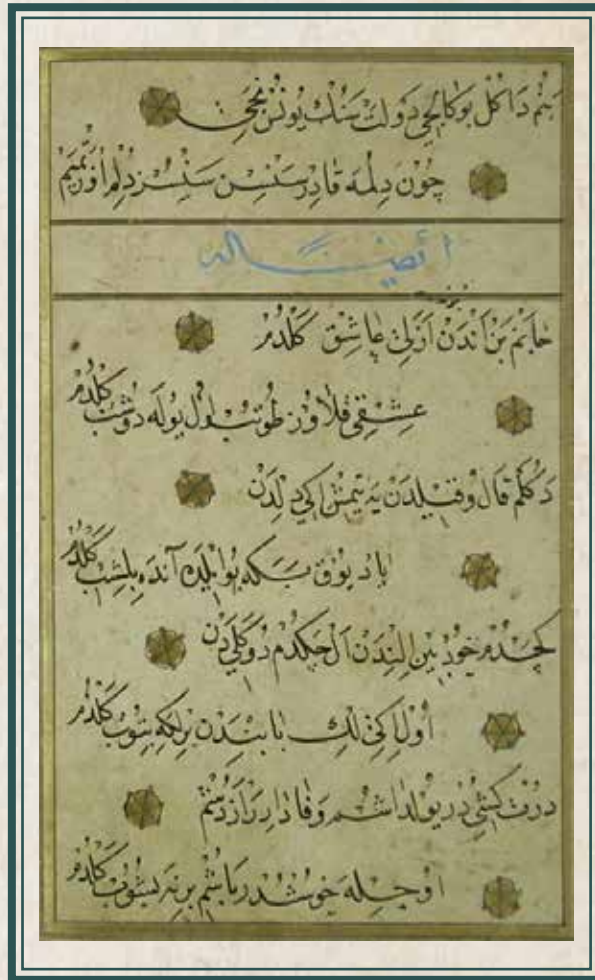 بنم داكل بو كالجى دولت سنك يونس
چون دلمه قادر سنسن سنسز دلم
ايضاً له
جانم بن اندن ازلى عاشق كلدم
عشقى قلاوز طوتب اول يوله دوشب كلدم
دكلم قال و قيلدن يه يتمش اكى دلدن
ياد يوق بكه بو ايلده آنده بلشب كلدم
كچدم خودبين الندن ال چكدم دوكلدن
اول اكيلك بابندن برلكه بتوب كلدم
درت كشى در يولداشم وفادار رازدشم
اوچله خوشدر باشم برنه بشوب كلدم